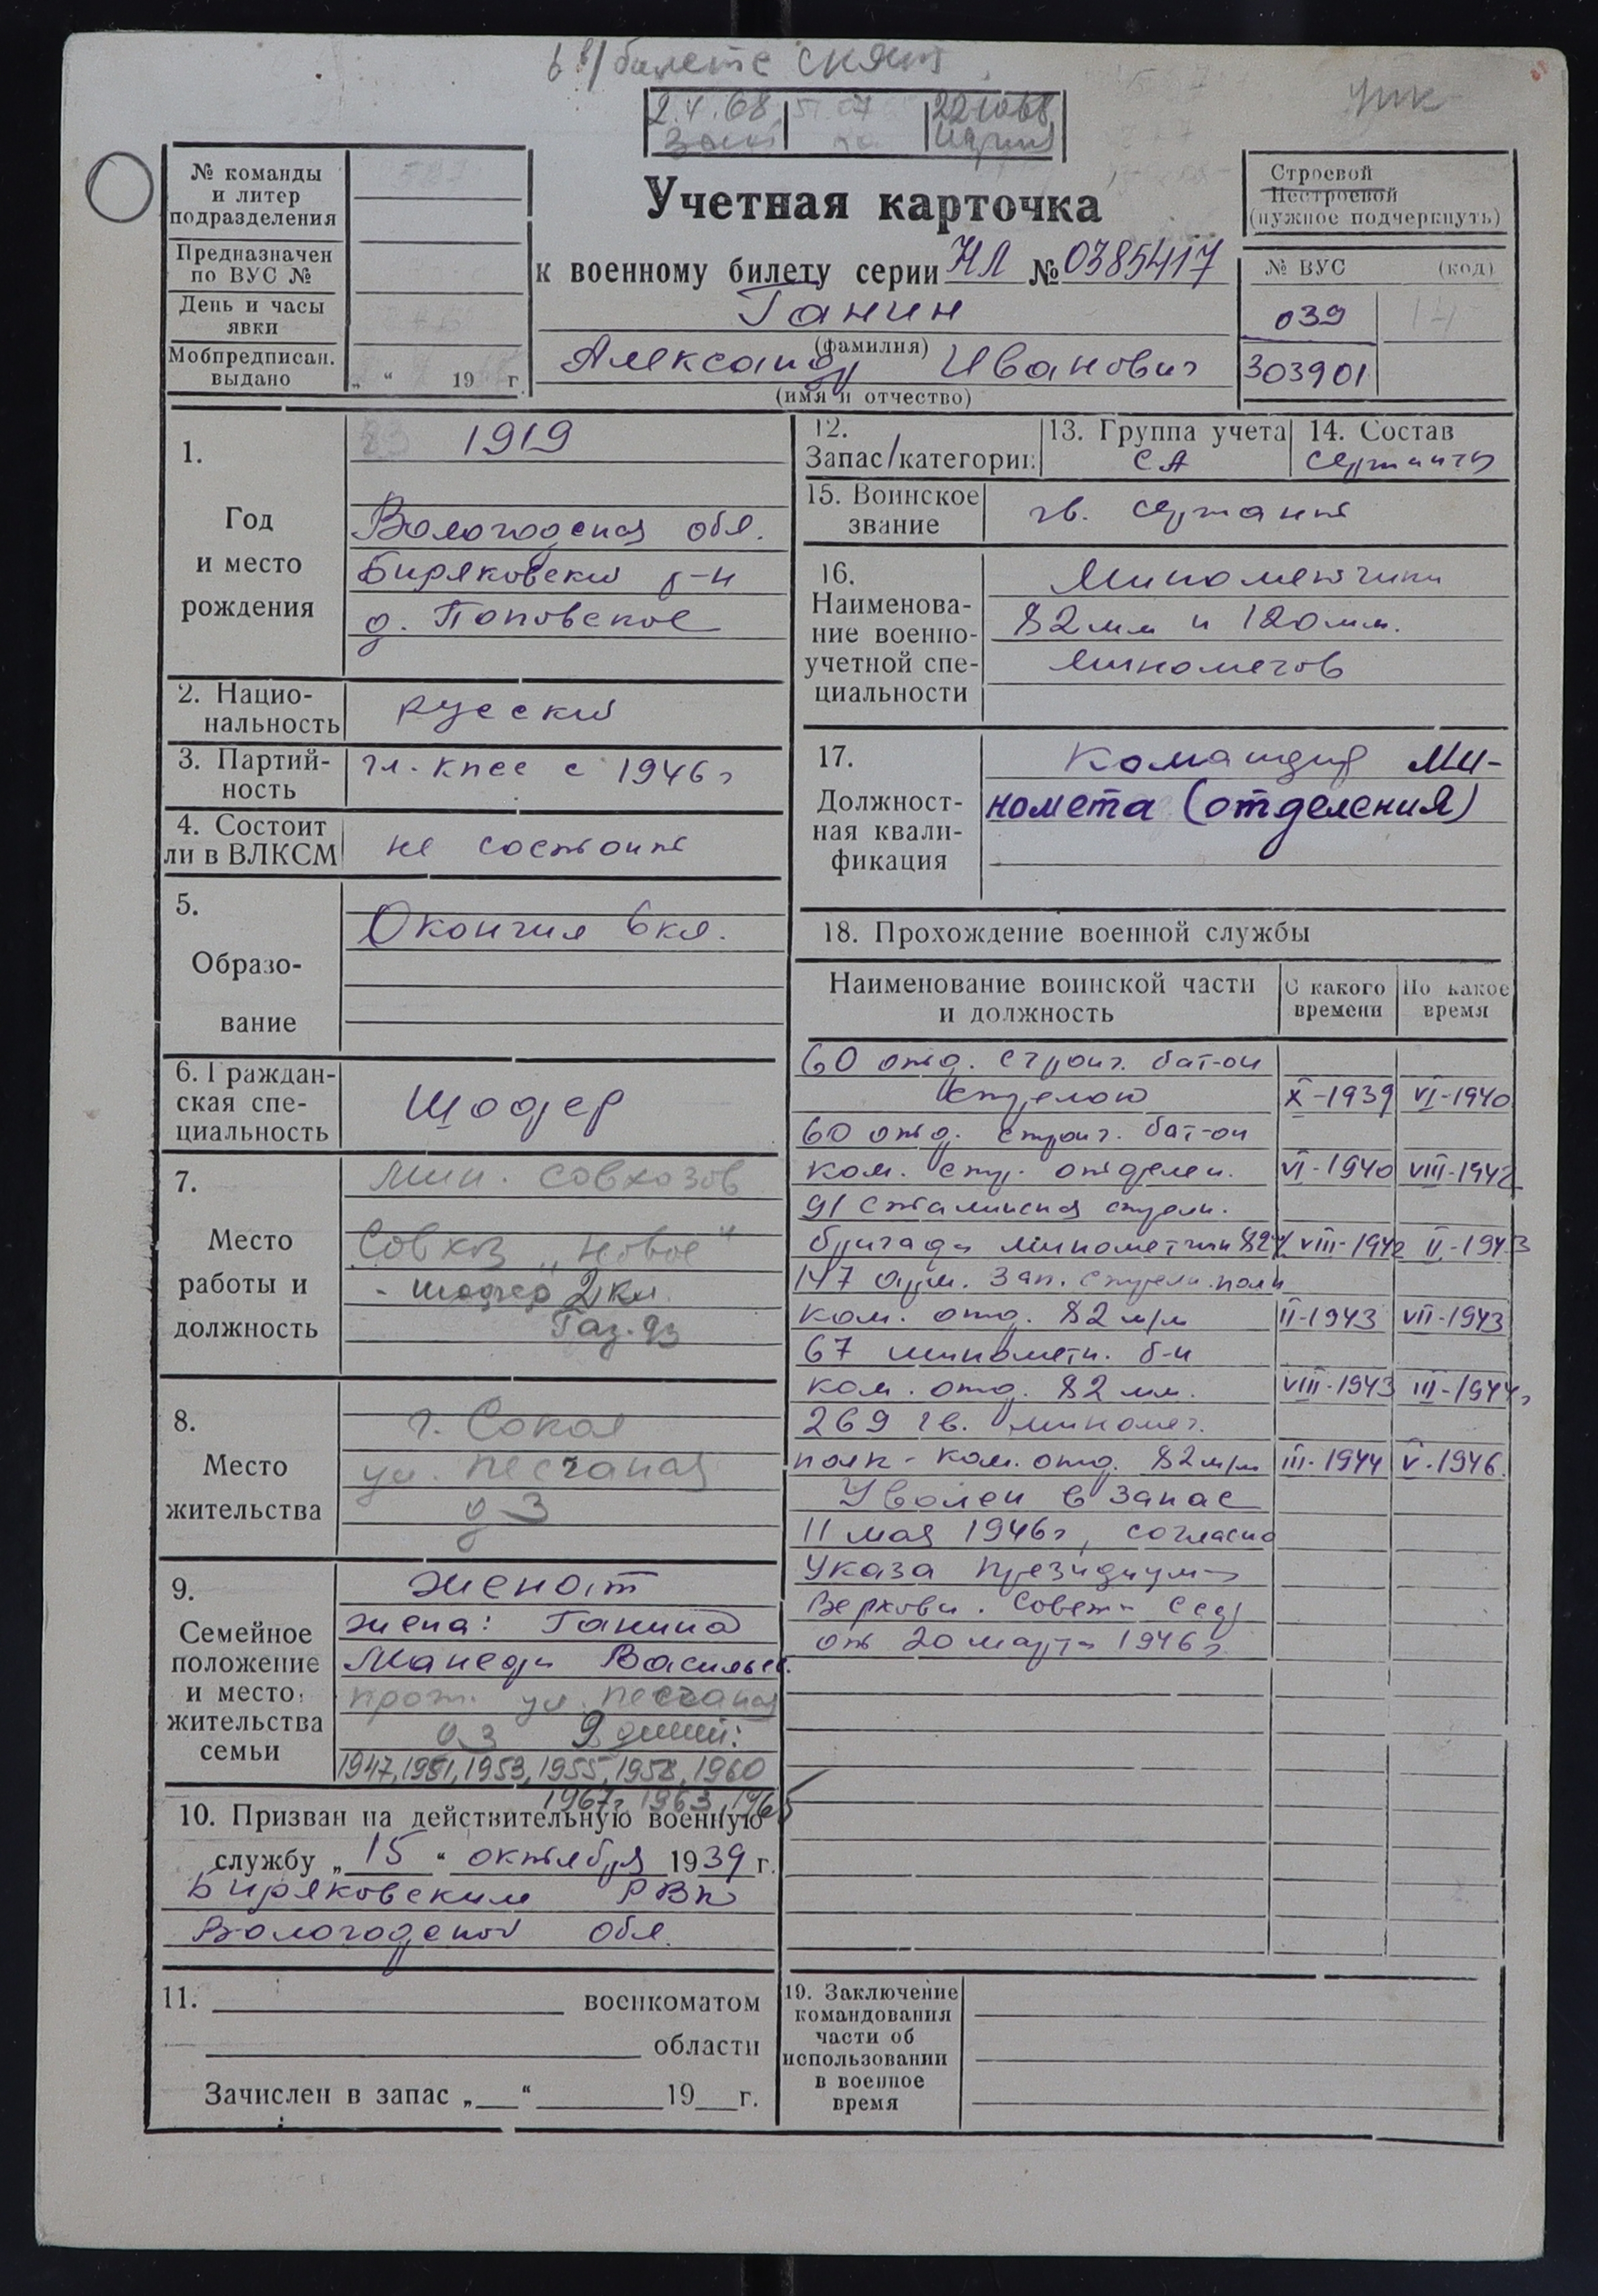 в в/билете снят
2.4.68
22.10.68
№ команды
и литер
подразделения
Предназначен
по ВУС №
День и часы
явки
Мобпредписан.
выдано „ “ 19 г.
Учетная карточка
к военному билету серии НЛ № 0385417
Ганин
(фамилия)
Александр Иванович
(имя и отчество)
Строевой
Нестроевой
(нужное подчеркнуть)
№ ВУС (код)
039 14
303901
1.
Год
и место
рождения
1919
Вологодская обл.
Биряковский р-н
д. Поповское
2. Нацио-
нальность
русский
3. Партий-
ность
чл. КПСС с 1946 г
4. Состоит
ли в ВЛКСМ
не состоит
5.
Образо-
вание
Окончил 6 кл.
6. Граждан-
ская спе-
циальность
Шофер
7.
Место
работы и
должность
Мин. совхозов
Совхоз „Новое“
- шофер 2 кл.
Газ-93
8.
Место
жительства
г. Сокол
ул. Песчаная
д 3
9.
Семейное
положение
и место
жительства
семьи
Женат
жена: Ганина
Васильев.
прож. ул. Песчаная
д 3 9 детей:
1947, 1951, 1953, 1955, 1958, 1960
1967г, 1963, 1965
10. Призван на действительную военную
службу „15“ октября 1939 г.
Биряковским РВК
Вологодской обл.
11. военкоматом
области
Зачислен в запас „ “ 19 г.
12.
Запас/категории
13. Группа учета
СА
14. Состав
сержанты
15. Воинское
звание
гв. сержант
16.
Наименова-
ние военно-
учетной спе-
циальности
Минометчики
82мм и 120мм.
минометов
17.
Должност-
ная квали-
фикация
Командир ми-
номета (отделения)
18. Прохождение военной службы
Наименование воинской части
и должность
С какого
времени
По какое
время
60 отд. строит. бат-он
Стрелок X-1939 VI-1940
60 отд. строит. бат-он
ком. стр. отделен. VI-1940 VIII-1942
91 Сталинская стрелк.
бригада минометчик 82 VIII-1942 II-1943
147 арм. зап. стрелк. полк
ком. отд. 82 м/м II-1943 VII-1943
67 минометн. б-н
ком. отд. 82 мм. VIII-1943 III-1944г
269 гв. миномет.
полк - ком. отд. 82 м/м III-1944 V-1946
Уволен в запас
11 мая 1946г, согласно
Указа Президиума
Верховн. Совета СССР
от 20 марта 1946 г.
19. Заключение
командования
части об
использовании
в военное
время